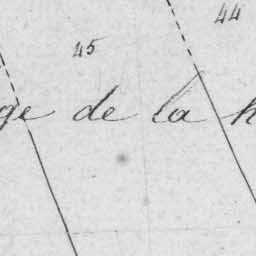 44
45
ge de la